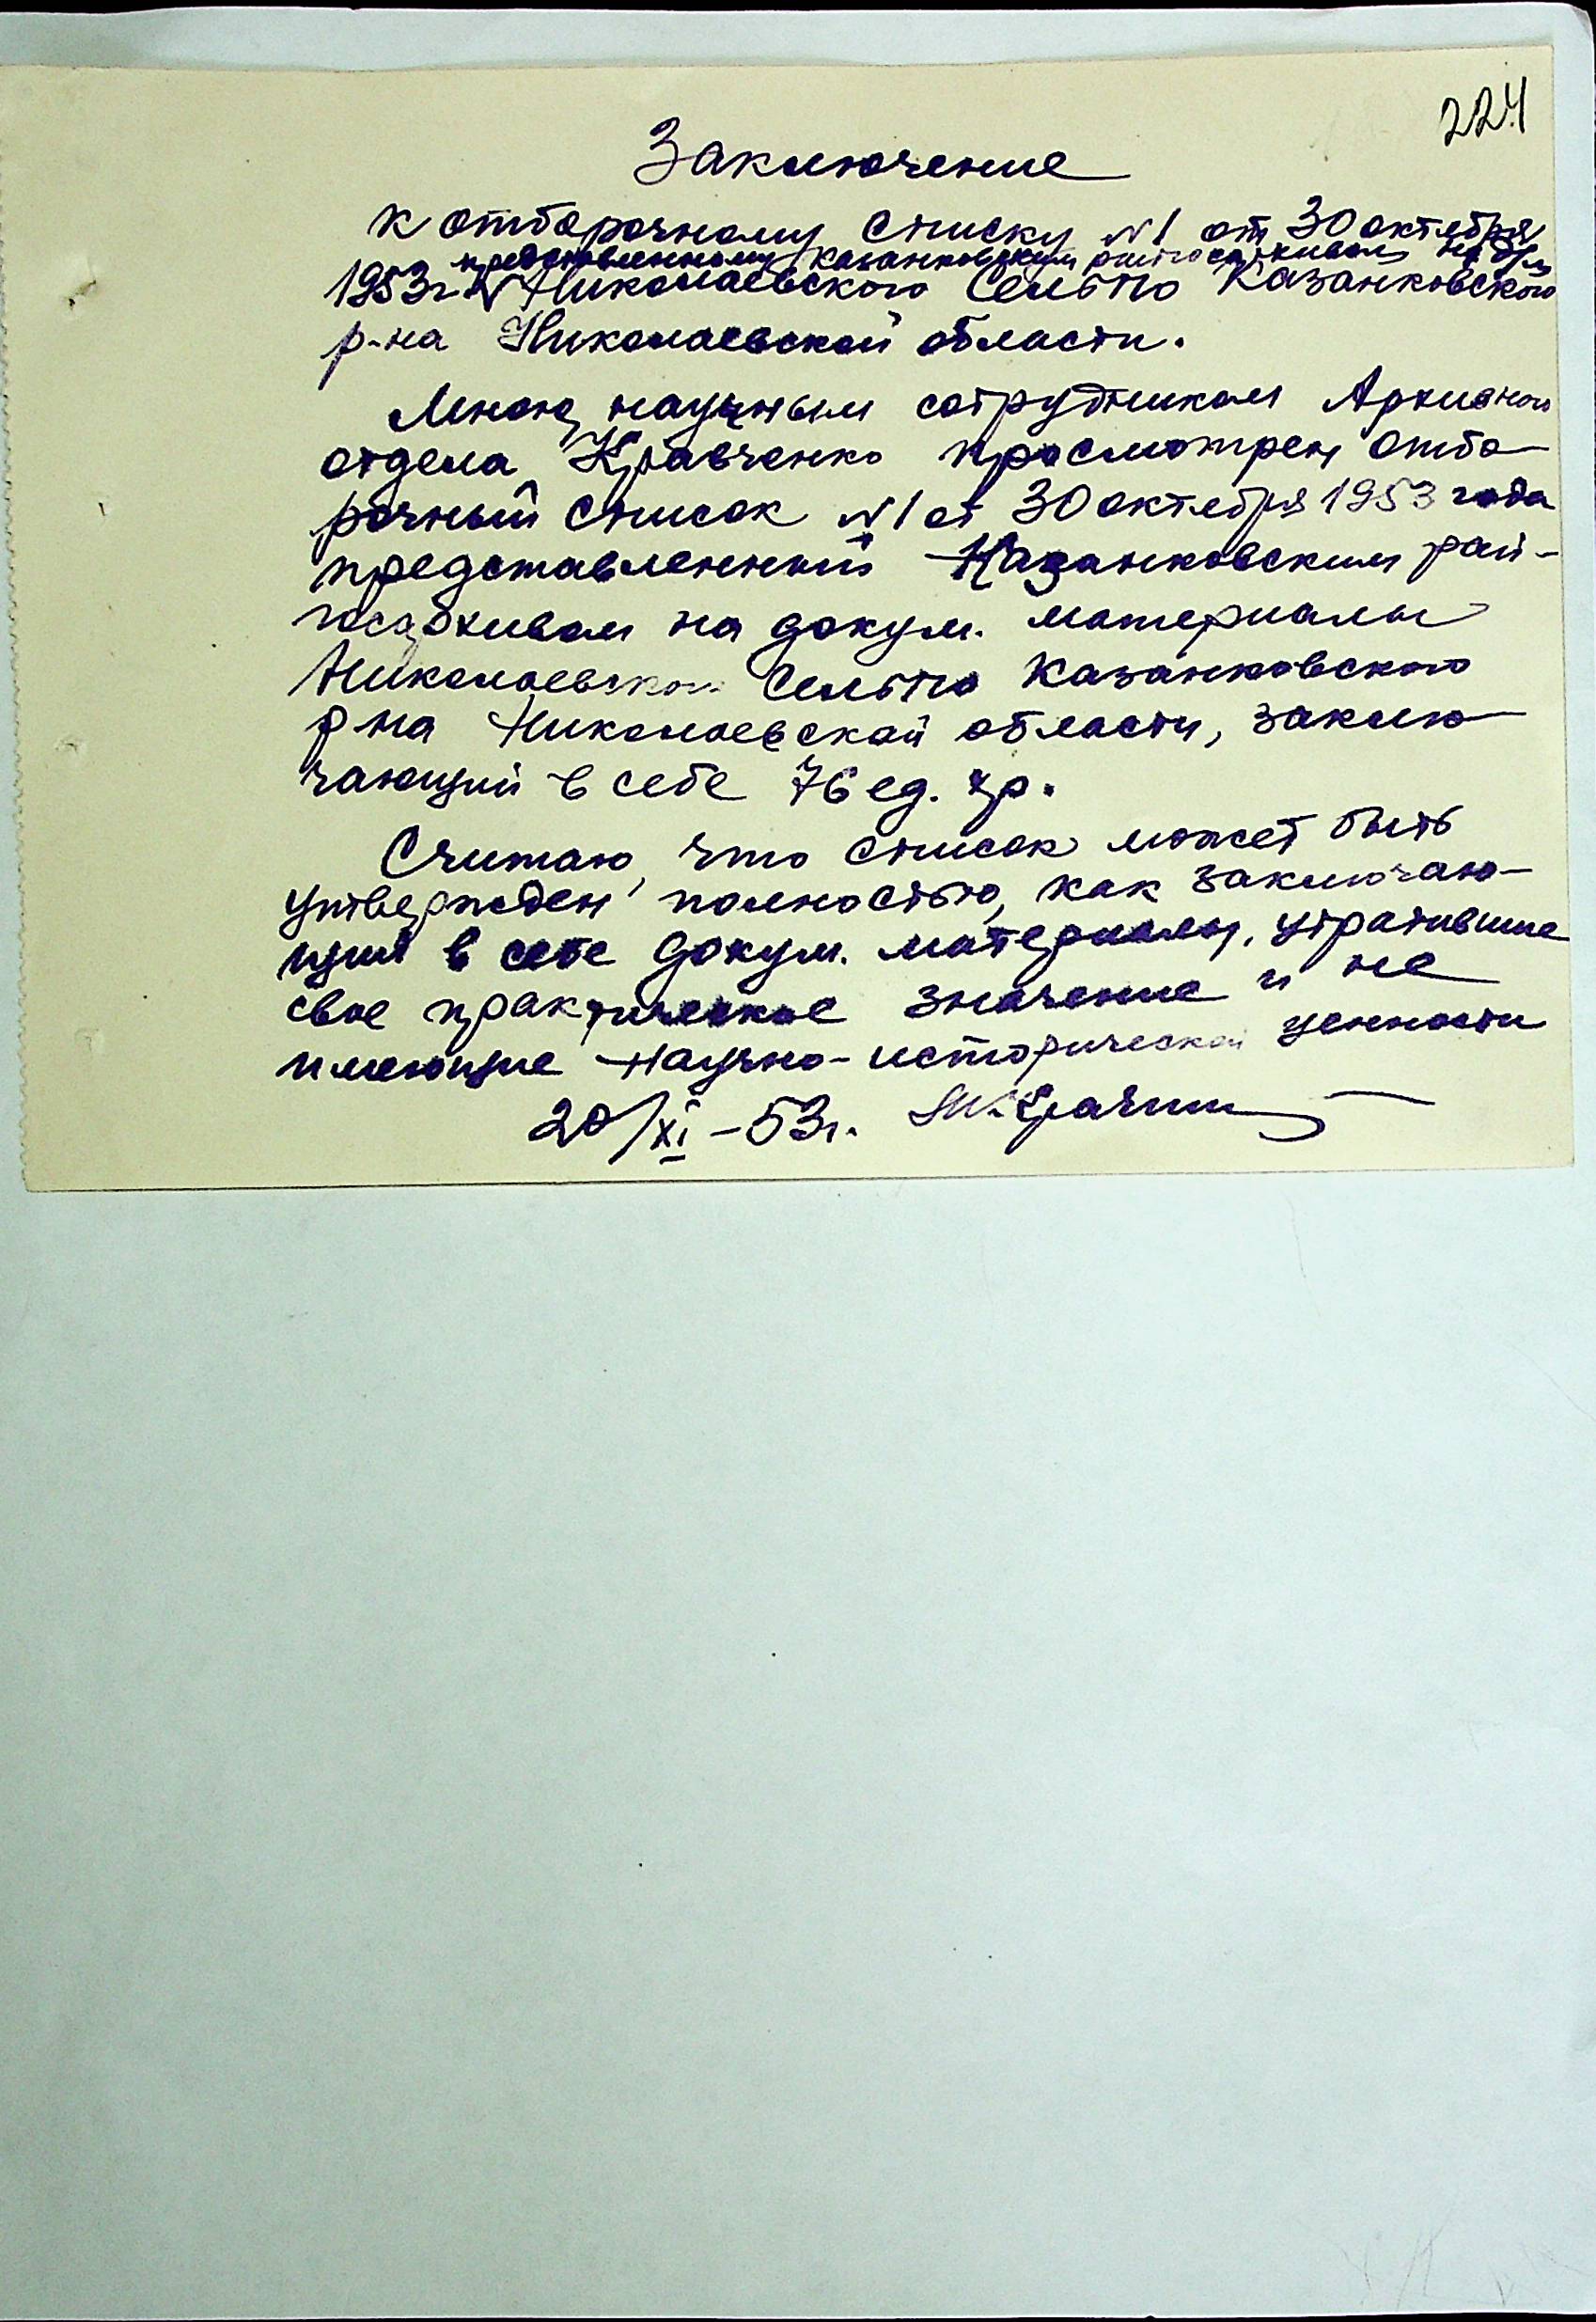 224
Заключение
к отборочному списку №1 от 30 октября
представленному Казанковским райгосархивом на
1953г. Николаевского Сельпо Казанковского
р-на Николаевской области.
Мною, научным сотрудником Архивного
отдела Кравченко просмотрен отбо-
рочный список №1 от 30 октября 1953 года
представленный Казанковским рай-
госархивом на докум. материалы
Николаевского Сельпо Казанковского
р-на Николаевской области, заклю-
чающий в себе 76 ед. хр.
Считаю, что список может быть
утвержден полностью, как заключаю-
щий в себе докум. материалы, утратившие
свое практическое значение и не
имеющие научно-исторической ценности
20/XI-53г.